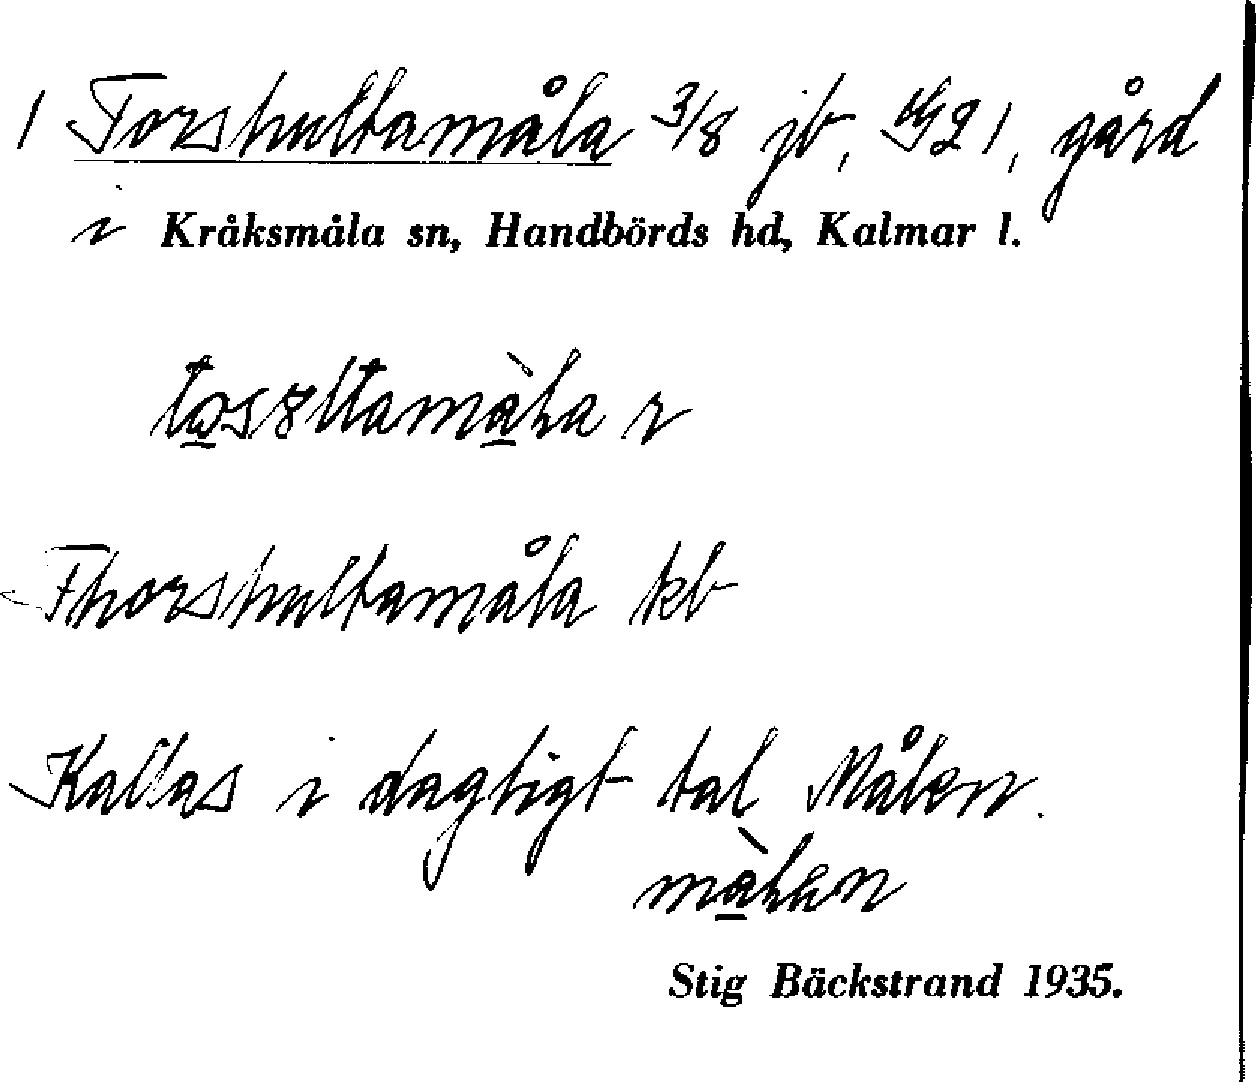 1 Torshultamåla 3/8 jb, G21, gård
i Kråksmåla sn, Handbörds hd, Kalmar l.
Thorshultamåla kb
Kallas i dagligt tal Målen.
Stig Bäckstrand 1935.